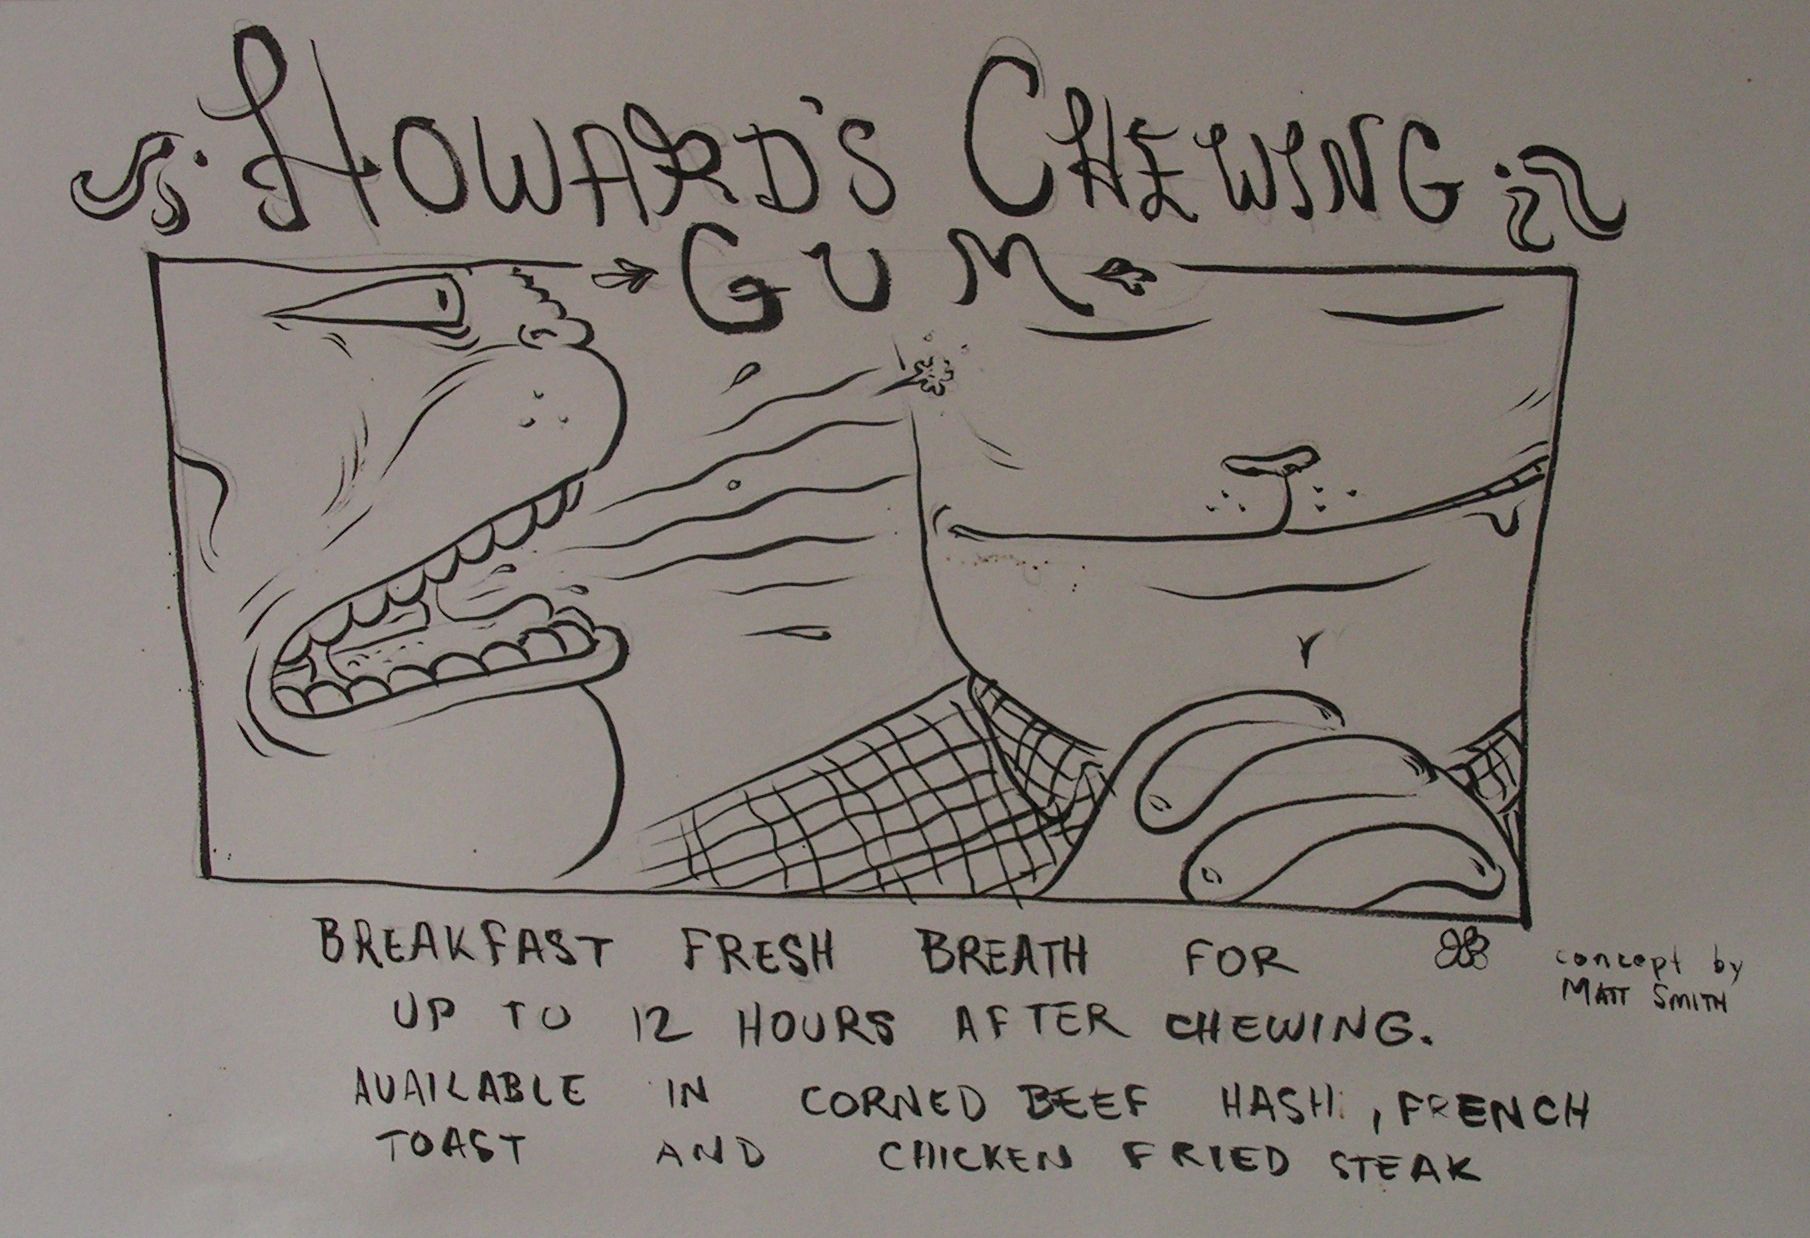 HOWARD'S CHEWING
GUM
BREAKFAST FRESH BREATH FOR
UP TO 12 HOURS AFTER CHEWING.
AVAILABLE IN CORNED BEEF HASH, FRENCH
TOAST AND CHICKEN FRIED STEAK
concept by
MATT SMITH